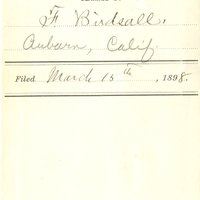 F Birdsall,
Auburn, Calif.
Filed March 15th, 1898.